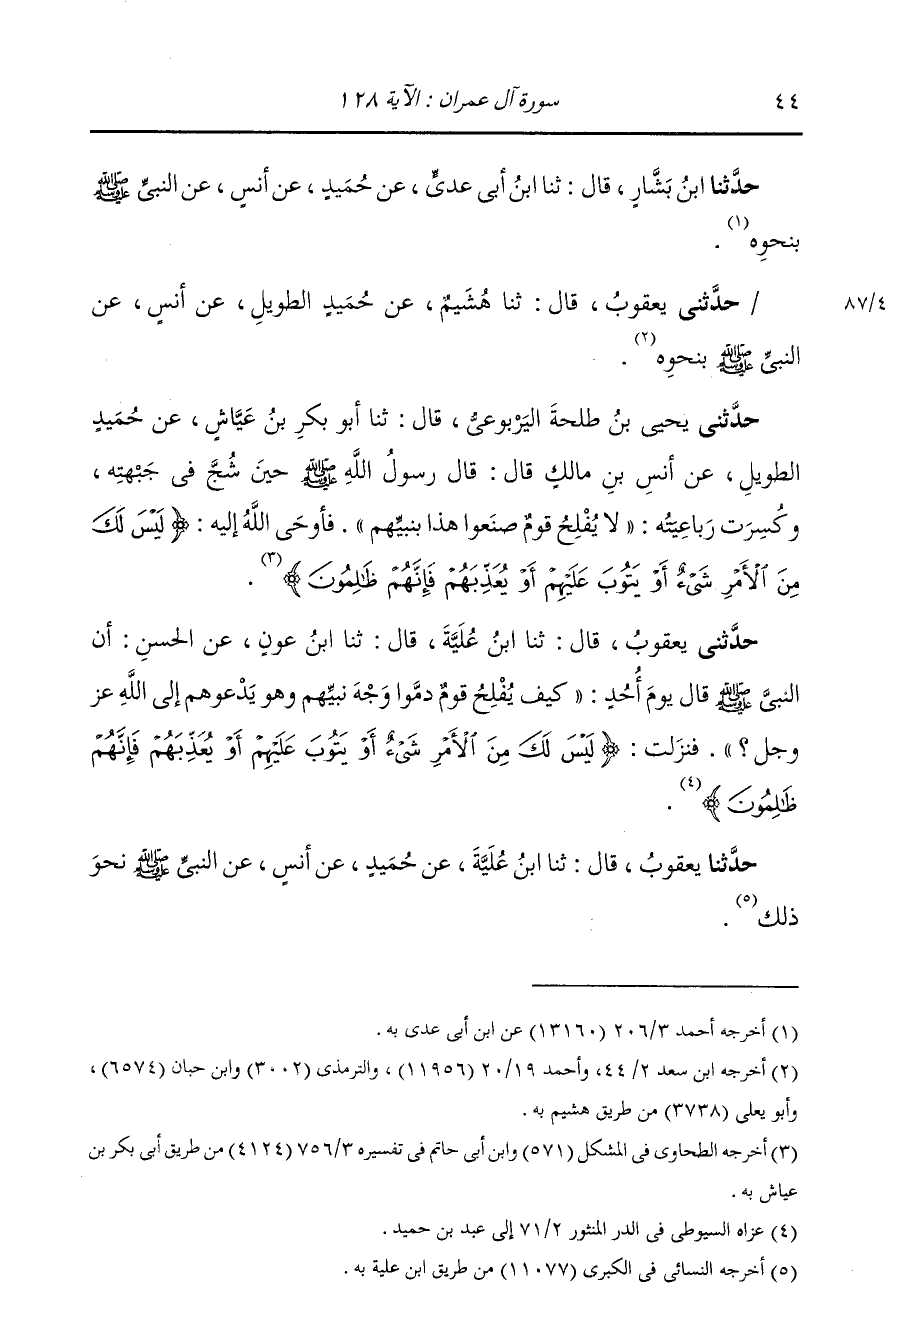 ٤٤ سورة آل عمران : الآية ١٢٨
حدَّثنا ابنُ بَشَّارٍ ، قال : ثنا ابنُ أبى عدىٍّ ، عن حُمَيدٍ ، عن أنسٍ ، عن النبىِّ ﷺ
بنحوِه(١) .
٨٧/٤ / حدَّثنى يعقوبُ ، قال : ثنا هُشَيمٌ ، عن حُمَيدٍ الطويلِ ، عن أنسٍ ، عن
النبىِّ ﷺ بنحوِه(٢) .
حدَّثنى يحيى بنُ طلحةَ اليَرْبوعىُّ ، قال : ثنا أبو بكرِ بنُ عَيَّاشٍ ، عن حُمَيدٍ
الطويلِ ، عن أنسِ بنِ مالكٍ قال : قال رسولُ اللَّهِ ﷺ حينَ شُجَّ فى جَبْهتِه ،
وكُسِرَت رَباعِيَتُه : « لا يُفْلِحُ قومٌ صنَعوا هذا بنبيِّهم » . فأوحَى اللَّهُ إليه : ﴿ لَيْسَ لَكَ
مِنَ ٱلْأَمْرِ شَىْءٌ أَوْ يَتُوبَ عَلَيْهِمْ أَوْ يُعَذِّبَهُمْ فَإِنَّهُمْ ظَٰلِمُونَ ﴾(٣) .
حدَّثنى يعقوبُ ، قال : ثنا ابنُ عُلَيَّةَ ، قال : ثنا ابنُ عونٍ ، عن الحسنِ : أن
النبىَّ ﷺ قال يومَ أُحُدٍ : « كيف يُفْلِحُ قومٌ دمَّوا وَجْهَ نبيِّهم وهو يَدْعوهم إلى اللَّهِ عز
وجل ؟ » . فنزَلت : ﴿ لَيْسَ لَكَ مِنَ ٱلْأَمْرِ شَىْءٌ أَوْ يَتُوبَ عَلَيْهِمْ أَوْ يُعَذِّبَهُمْ فَإِنَّهُمْ
ظَٰلِمُونَ ﴾(٤) .
حدَّثنا يعقوبُ ، قال : ثنا ابنُ عُلَيَّةَ ، عن حُمَيدٍ ، عن أنسٍ ، عن النبىِّ ﷺ نحوَ
ذلك(٥) .
(١) أخرجه أحمد ٢٠٦/٣ (١٣١٦٠) عن ابن أبى عدى به .
(٢) أخرجه ابن سعد ٢/ ٤٤، وأحمد ٢٠/١٩ (١١٩٥٦) ، والترمذى (٣٠٠٢) وابن حبان (٦٥٧٤) ،
وأبو يعلى (٣٧٣٨) من طريق هشيم به .
(٣) أخرجه الطحاوى فى المشكل (٥٧١) وابن أبى حاتم فى تفسيره ٧٥٦/٣ (٤١٢٤) من طريق أبى بكر بن
عياش به .
(٤) عزاه السيوطى فى الدر المنثور ٧١/٢ إلى عبد بن حميد .
(٥) أخرجه النسائى فى الكبرى (١١٠٧٧) من طريق ابن علية به .